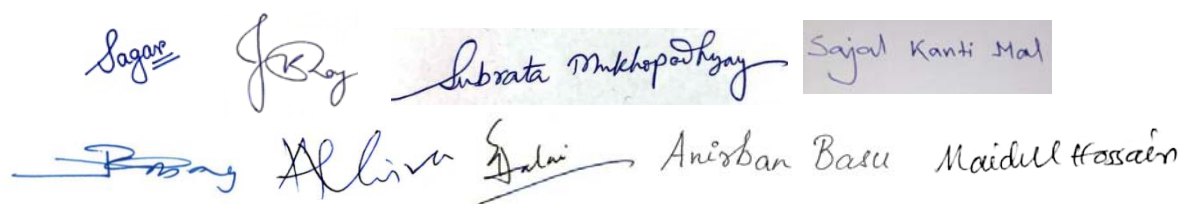 Sagar JRoy Subrata Mukhopadhyay Sajal Kanti Mal
Dalai Anirban Basu Maidull Hossain